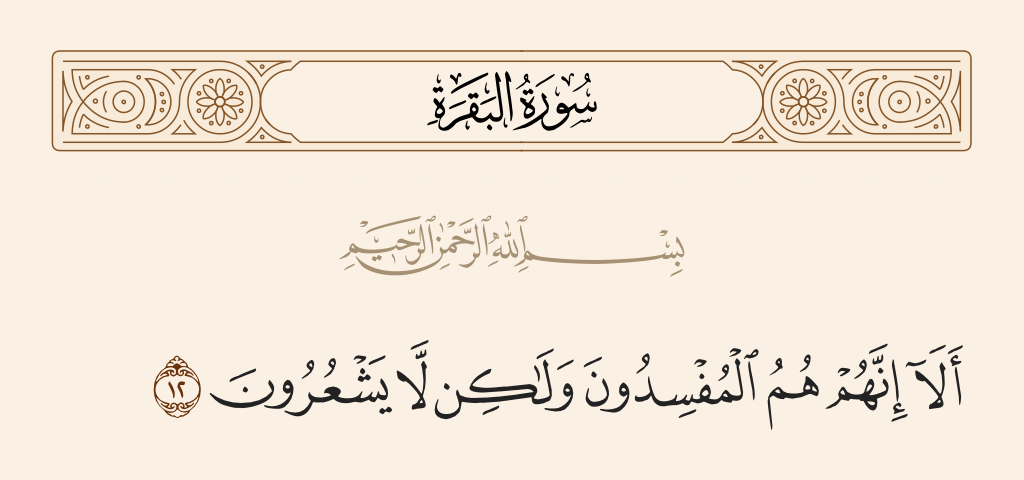 سُورَةُ البَقَرَةِ
بِسْمِ ٱللَّهِ ٱلرَّحْمَٰنِ ٱلرَّحِيمِ
أَلَآ إِنَّهُمْ هُمُ ٱلْمُفْسِدُونَ وَلَٰكِن لَّا يَشْعُرُونَ ١٢